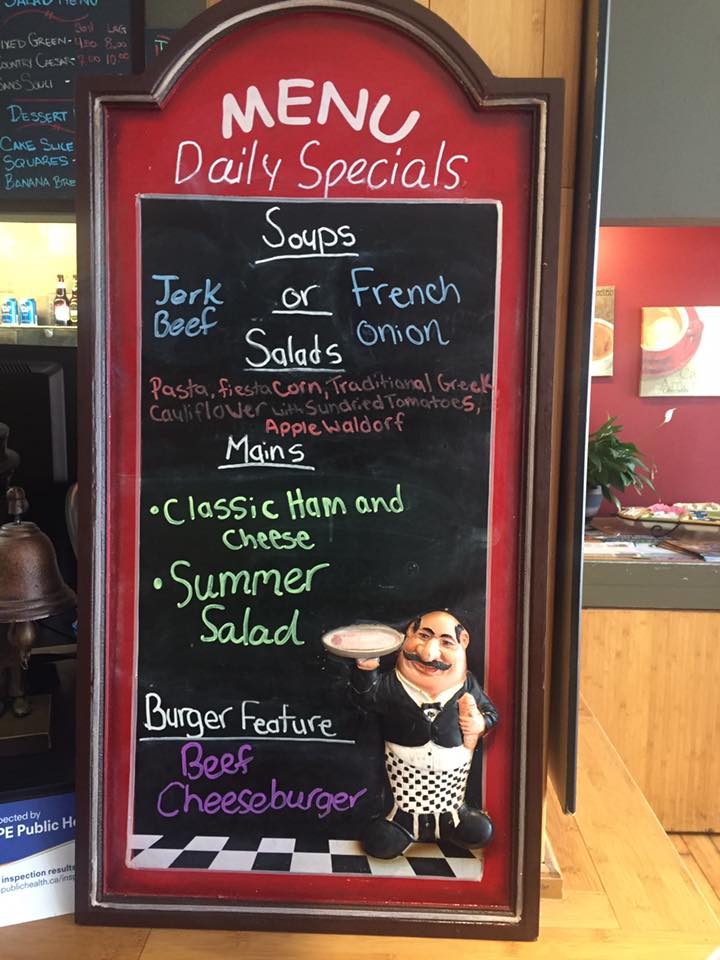 SALAD MENU
Sml LRG
MIXED GREEN - 4.00 8.00
COUNTRY CAESAR - 7.00 10.00
SANS SOUCI -
DESSERT
CAKE SLICE
SQUARES -
BANANA BRE
MENU
Daily Specials
Soups
Jerk Beef or French Onion
Salads
Pasta, fiesta corn, Traditional Greek
Cauliflower with Sundried Tomatoes,
Apple Waldorf
Mains
• Classic Ham and
Cheese
• Summer
Salad
Burger Feature
Beef
Cheeseburger
pected by
PE Public He
inspection results
publichealth.ca/insp